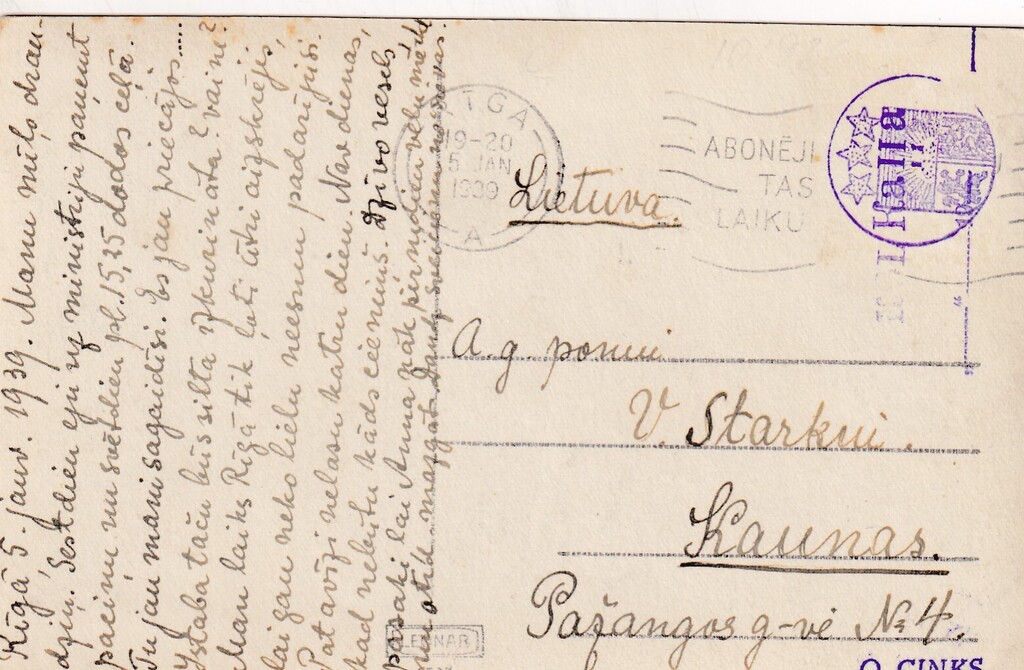 Rīgā 5. janv. 1939. Manu mīļo drau-
dziņ! Sestdien eju uz ministriju paņemt
paciņu un svētdien pl. 15,25 dodos ceļā.
Tu jau mani sagaidīsi. Es jau priecājos.....
Istaba taču būs silta izkurināta? vaine?
Man laiks Rīgā tik ļoti ātri aizskrēji,
lai gan neko lielu neesmu padarījusi.
Patavīzi nelasu katru dienu. Nav dienas,
kad nebūtu kāds ciemiņš. Dzīvo vesels
pasaki lai Anna nāk pirmdien veļu mazgāt
RĪGA
19-20
5 JAN
1939
A
ABONĒJI
TAS
LAIKU
Lietuva.
A. g. ponui
V. Starkui.
Kaunas.
Pažangos g-vė № 4.
LEONAR
O. CINKS